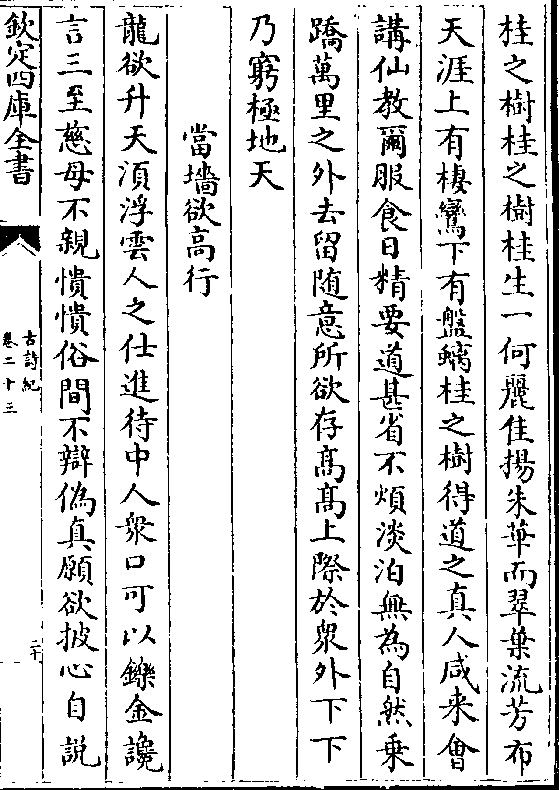 桂之樹桂之樹桂生一何麗佳揚朱華而翠葉流芳布
天涯上有棲鸞下有盤螭桂之樹得道之真人咸来會
講仙教爾服食日精要道甚省不煩淡泊無為自然乗
蹻萬里之外去留随意所欲存髙髙上際於衆外下下
乃窮極地天
當墻欲高行
龍欲升天湏浮雲人之仕進待中人衆口可以鑠金讒
言三至慈母不親憒憒俗間不辯偽真願欲披心自説
欽定四庫全書
古詩紀
卷二十三